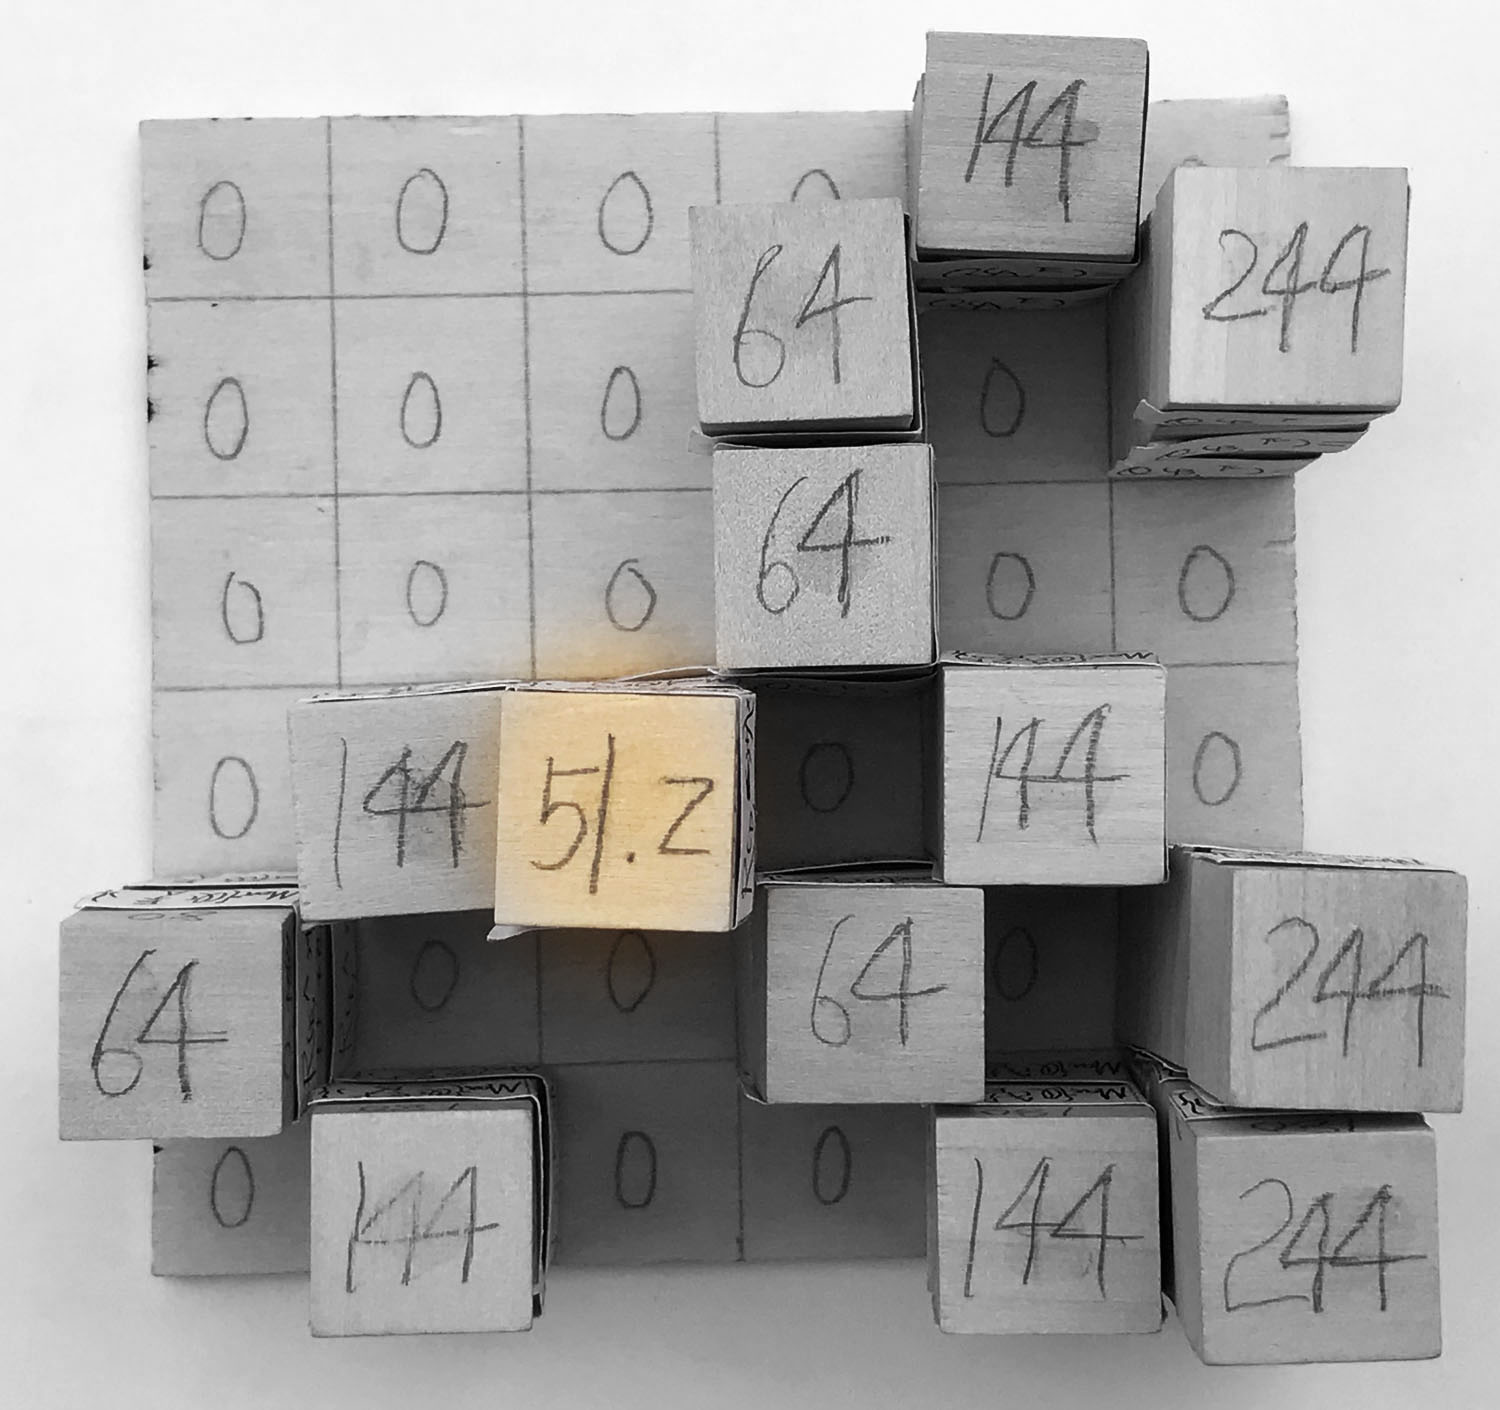 0 0 0 0 144
64 244
0 0 0 0
64
0 0 0 0 0
0 144 51.2 0 144 0
64 0 0 64 0 244
0 144 0 0 144 244